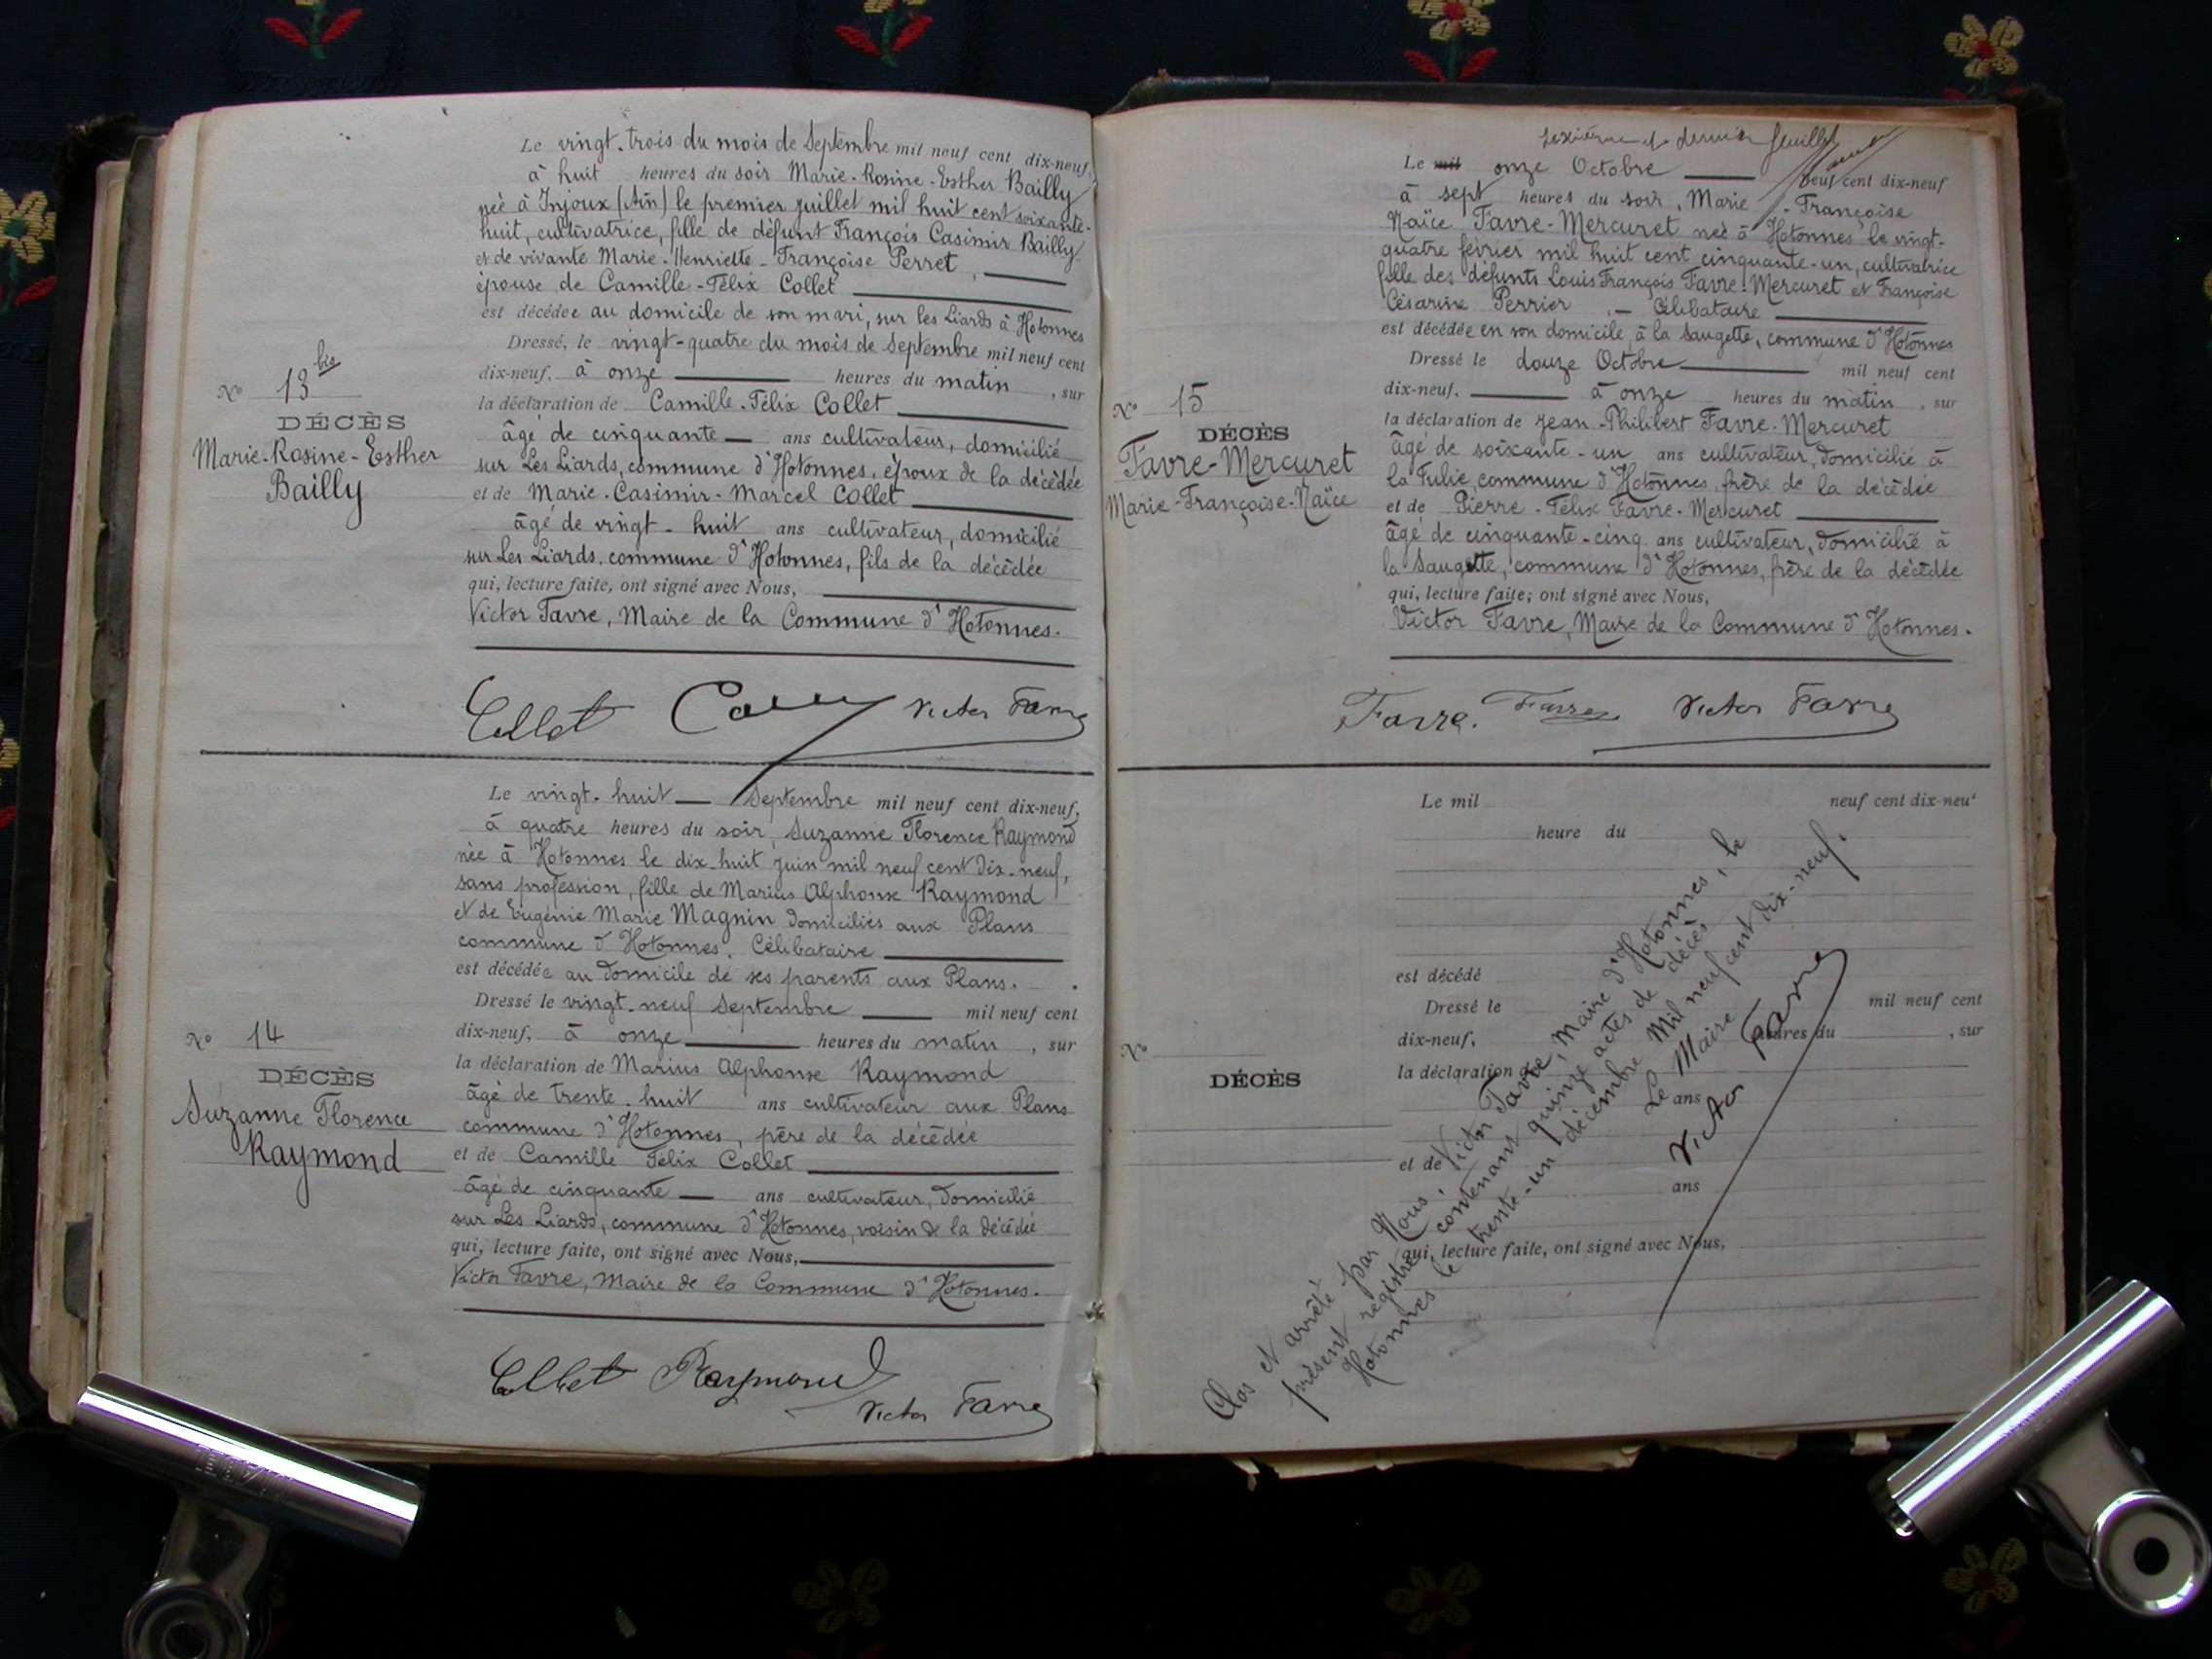 Le vingt-trois du mois de Septembre mil neuf cent dix-neuf,
à huit heures du soir Marie-Rosine-Esther Bailly
née à Injoux (Ain) le premier juillet mil huit cent soixante-
huit, cultivatrice, fille de défunt François Casimir Bailly
et de vivante Marie-Henriette-Françoise Perret,
épouse de Camille-Félix Collet
est décédée au domicile de son mari, sur les Liards à Hotonnes
Dressé, le vingt-quatre du mois de Septembre mil neuf cent
dix-neuf, à onze heures du matin, sur
la déclaration de Camille-Félix Collet
âgé de cinquante ans cultivateur, domicilié
sur Les Liards, commune d'Hotonnes, époux de la décédée
et de Marie-Casimir-Marcel Collet
âgé de vingt-huit ans cultivateur, domicilié
sur Les Liards, commune d'Hotonnes, fils de la décédée
qui, lecture faite, ont signé avec Nous,
Victor Favre, Maire de la Commune d'Hotonnes.
No 13 bis
DÉCÈS
Marie-Rosine-Esther
Bailly
Collet Victor Favre
Le vingt-huit Septembre mil neuf cent dix-neuf,
à quatre heures du soir, Suzanne Florence Raymond
née à Hotonnes le dix-huit juin mil neuf cent dix-neuf,
sans profession, fille de Marius Alphonse Raymond
et de Eugénie Marie Magnin domiciliés aux Plans
commune d'Hotonnes. Célibataire
est décédée au domicile de ses parents aux Plans.
Dressé le vingt-neuf Septembre mil neuf cent
dix-neuf, à onze heures du matin, sur
la déclaration de Marius Alphonse Raymond
âgé de trente-huit ans cultivateur aux Plans
commune d'Hotonnes, père de la décédée
et de Camille Félix Collet
âgé de cinquante ans cultivateur, domicilié
sur Les Liards, commune d'Hotonnes, voisin de la décédée
qui, lecture faite, ont signé avec Nous,
Victor Favre, Maire de la Commune d'Hotonnes.
No 14
DÉCÈS
Suzanne Florence
Raymond
Collet Raymond
Victor Favre
et dernier feuillet
Le mil onze Octobre neuf cent dix-neuf
à sept heures du soir, Marie-Françoise
Naïce Favre-Mercuret née à Hotonnes le vingt-
quatre février mil huit cent cinquante-un, cultivatrice
fille des défunts Louis François Favre-Mercuret et Françoise
Césarine Perrier. Célibataire
est décédée en son domicile, à la Saugette, commune d'Hotonnes
Dressé le douze Octobre mil neuf cent
dix-neuf, à onze heures du matin, sur
la déclaration de Jean-Philibert Favre-Mercuret
âgé de soixante-un ans cultivateur, domicilié à
la Julie, commune d'Hotonnes, frère de la décédée
et de Pierre-Félix Favre-Mercuret
âgé de cinquante-cinq ans cultivateur, domicilié à
la Saugette, commune d'Hotonnes, frère de la décédée
qui, lecture faite, ont signé avec Nous,
Victor Favre, Maire de la Commune d'Hotonnes.
No 15
DÉCÈS
Favre-Mercuret
Marie-Françoise-Naïce
Favre. Favre Victor Favre
Le mil neuf cent dix-neuf
heure du
est décédé
Dressé le mil neuf cent
dix-neuf, heures du , sur
la déclaration de
ans
et de
ans
qui, lecture faite, ont signé avec Nous,
No
DÉCÈS
Clos et arrêté par Nous, Victor Favre, Maire d'Hotonnes, le
présent registre contenant quinze actes de décès
Hotonnes le trente-un décembre Mil neuf cent dix-neuf.
Le Maire
Victor Favre